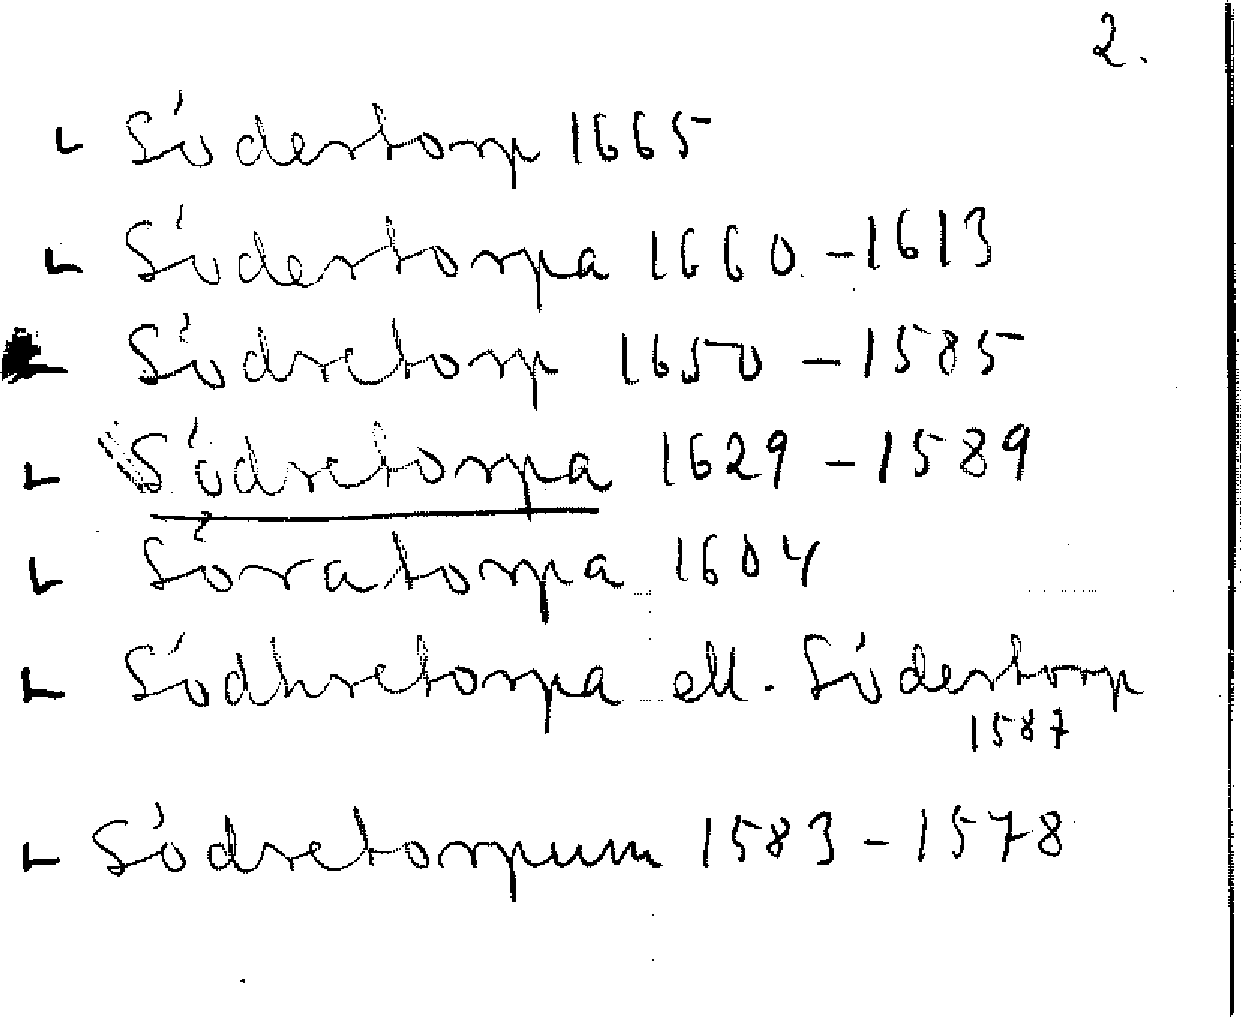 2.
Södertorp 1665
Södertorpa 1660-1613
Södretorp 1650-1585
Södretorpa 1629-1589
Söratorpa 1604
Södhretorpa ell. Södertorp
1587
Södretorpum 1583-1578